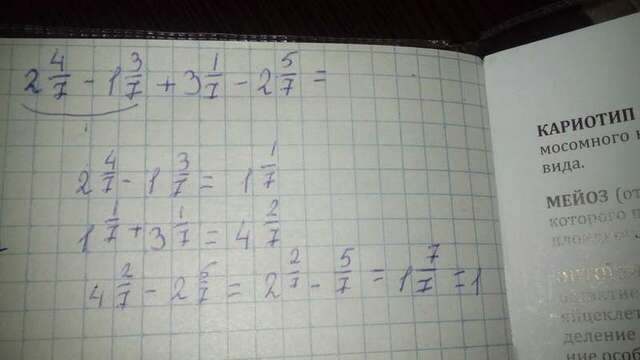 2 4/7 - 1 3/7 + 3 1/7 - 2 5/7 =
2 4/7 - 1 3/7 = 1 1/7
1 1/7 + 3 1/7 = 4 2/7
4 2/7 - 2 5/7 = 2 2/7 - 5/7 = 1 7/7 = 1
КАРИОТИП
мосомного
вида.
МЕЙОЗ (от
которого п
яйцеклет
деление
ние особ